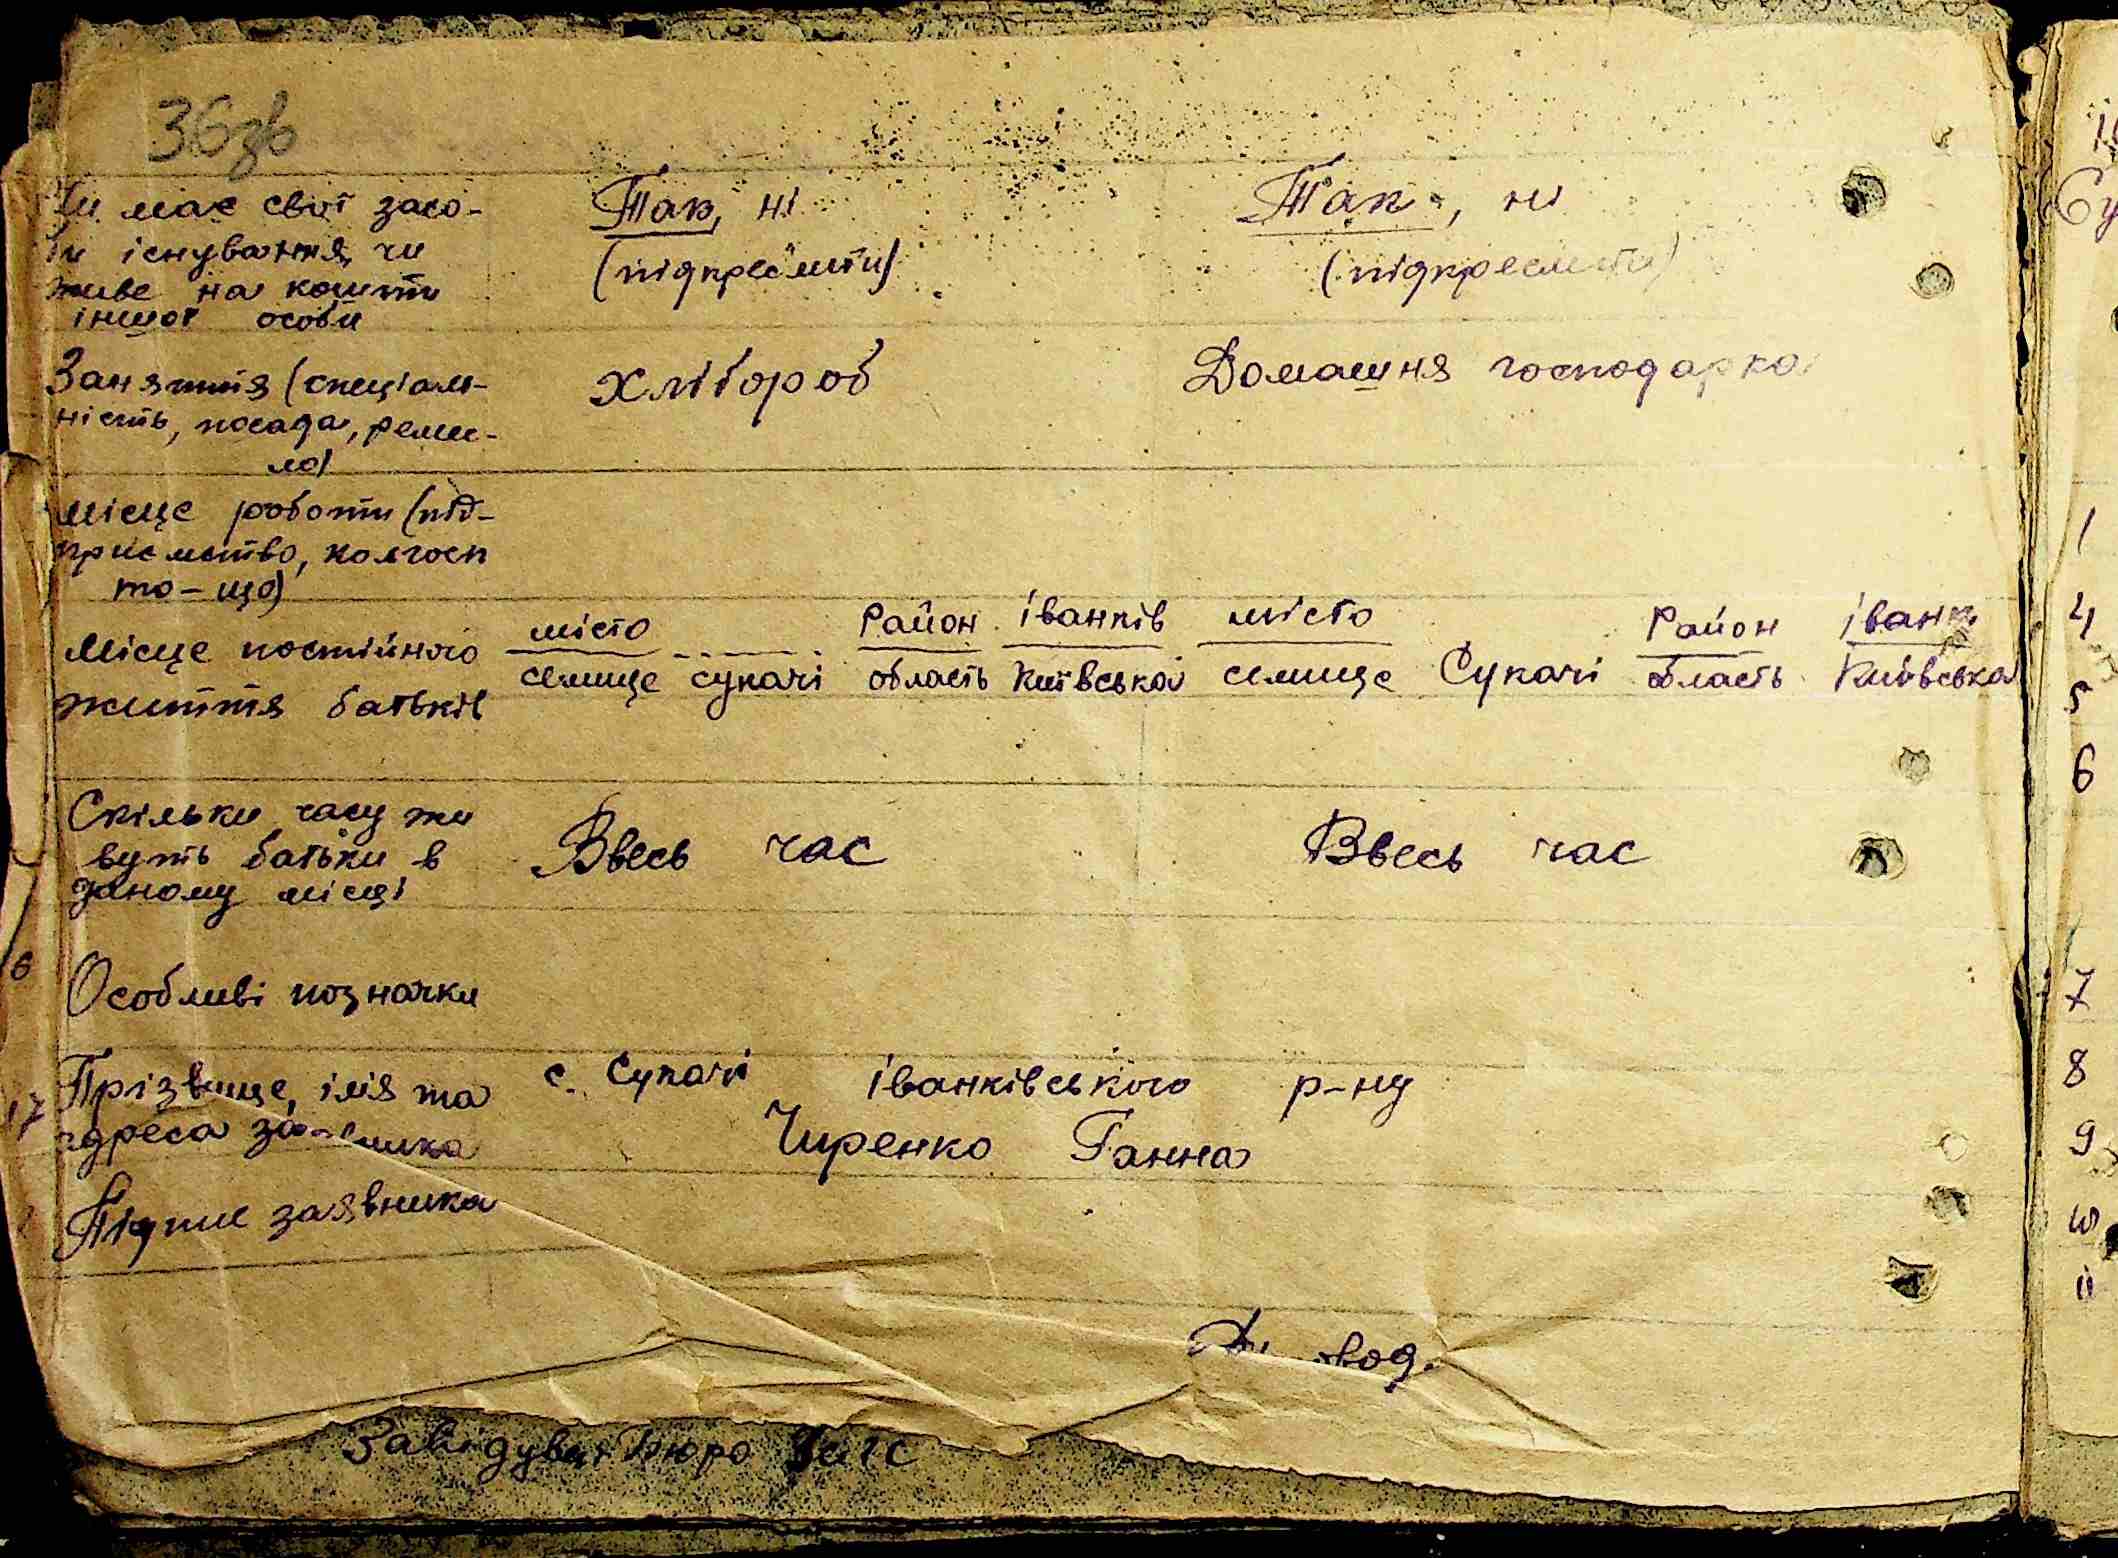 36зв
Чи має свої засо-
Так, ні
Так, ні
би існування, чи
(підкреслити)
(підкреслити)
живе на кошти
іншої особи
Заняття (спеціаль-
Хлібороб
Домашня господарка
ність, посада, ремес-
ло)
Місце роботи (під-
приємство, колгосп
то-що)
місто район Іванків місто район Іванк
Місце постійного
селище Сукачі область Київська селище Сукачі область Київська
життя батьків
Скільки часу жи
вуть батьки в
Ввесь час
Ввесь час
даному місці
6
Особливі позначки
17
Прізвище, імя та
с. Сукачі Іванківського р-ну
адреса заявника
Чиренко Ганна
Підпис заявника
Завідувач Бюро Загс
1
4
5
6
7
8
9
10
11